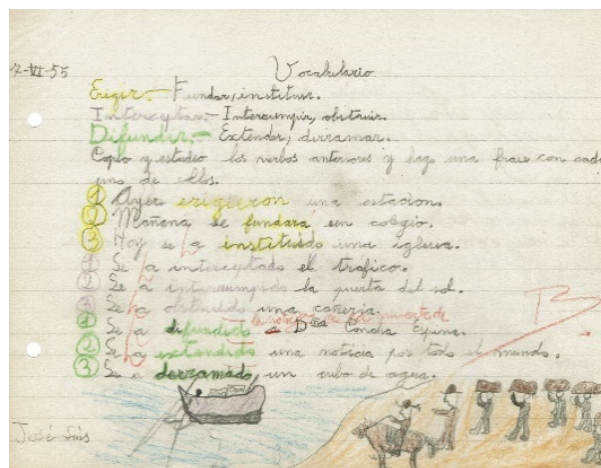 7-VI-55
Vocabulario
Erigir.- Fundar, instituir.
Interceptar.- Interrumpir, obstruir.
Difundir.- Extender, derramar.
Copio y estudio los verbos anteriores y hago una frase con cada
uno de ellos.
① Ayer erigieron una estacion.
② Mañena se fundará un colegio.
③ Hoy se ha instituido una iglesia.
① Se ha interceptado el tráfico.
② Se ha interrumpido la puerta del sol.
③ Se ha obstruido una cañeria.
la noticia de la muerte de
① Se ha difundido a Dña Concha Espina.
② Se ha extendido una noticia por todo el mundo.
③ Se a derramado un cubo de agua.
B
José Luis